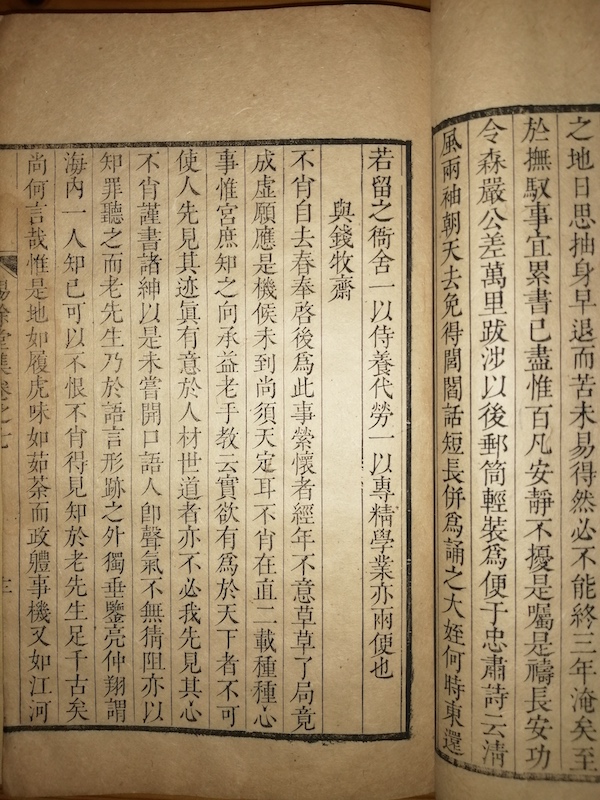 之地日思抽身早退而苦未易得然必不能終三年淹矣至
於撫馭事宜累書已盡惟百凡安靜不擾是囑是禱長安功
令森嚴公差萬里跋涉以後郵筒輕裝爲便于忠肅詩云清
風兩袖朝天去免得閭閻話短長併爲誦之大姪何時東還
若留之衙舍一以侍養代勞一以專精學業亦兩便也
與錢牧齋
不肖自去春奉啓後爲此事縈懷者經年不意草草了局竟
成虛願應是機候未到尚須天定耳不肖在直二載種種心
事惟宮庶知之向承益老手教云實欲有爲於天下者不可
使人先見其迹眞有意於人材世道者亦不必我先見其心
不肖謹書諸紳以是未嘗開口語人卽聲氣不無猜阻亦以
知罪聽之而老先生乃於語言形跡之外獨垂鑒亮仲翔謂
海內一人知己可以不恨不肖得見知於老先生足千古矣
尚何言哉惟是地如履虎味如茹荼而政體事機又如江河
賜餘堂集卷之七